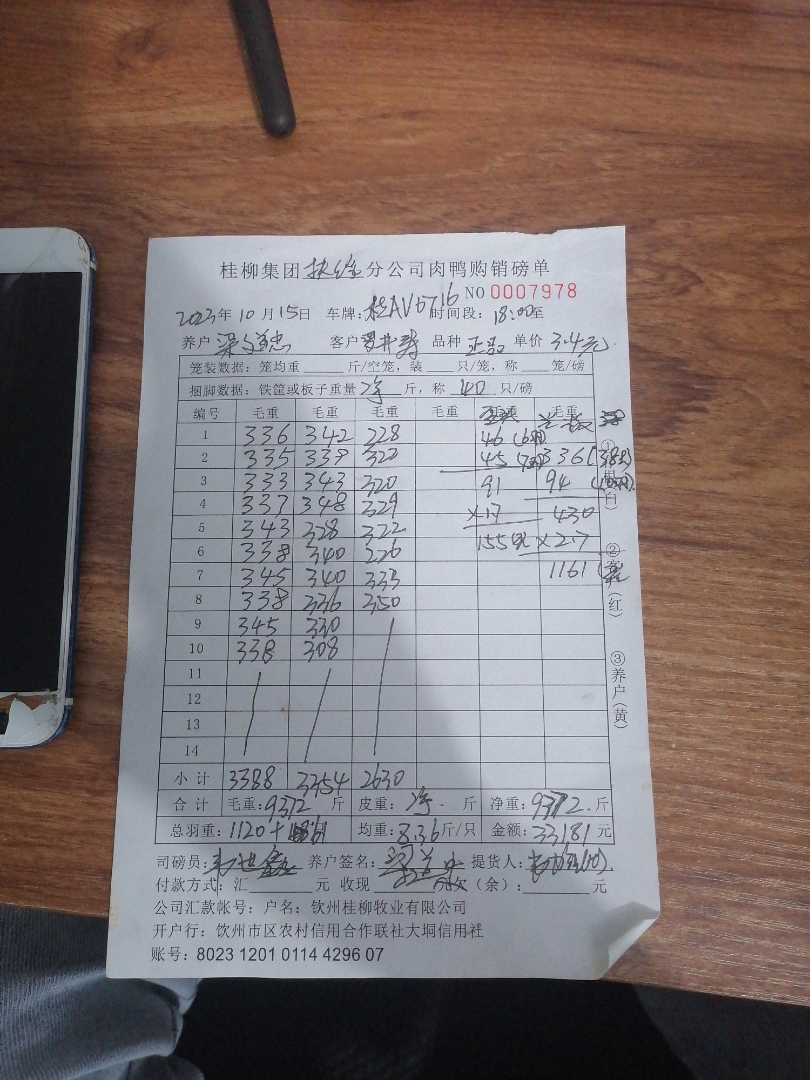 桂柳集团扶绥分公司肉鸭购销磅单
NO 0007978
2023年10月15日 车牌:桂AV0716 时间段:18:00至
养户 客户 品种 单价 3.4元
笼装数据:笼均重 斤/空笼,装 只/笼,称 笼/磅
捆脚数据:铁筐或板子重量 净 斤,称 40 只/磅
编号 毛重 毛重 毛重 毛重 毛重 毛重
1 336 342 328 46
2 335 339 322 45 336
3 333 343 320 91 94
4 337 348 329 ×17 430
5 343 328 322 ×2.7
6 338 340 326 1161
7 345 340 333
8 338 336 350
9 345 330
10 338 308
11
12
13
14
小计 3388 3354 2630
合计 毛重:9372 斤 皮重:净 斤 净重:9372 斤
总羽重:1120+ 均重:8.36斤/只 金额:33181元
司磅员: 养户签名: 提货人:
付款方式:汇 元 收现 欠(余): 元
公司汇款帐号:户名:钦州桂柳牧业有限公司
开户行:钦州市区农村信用合作联社大垌信用社
账号:8023 1201 0114 4296 07
①根(白)
②客户(红)
③养户(黄)